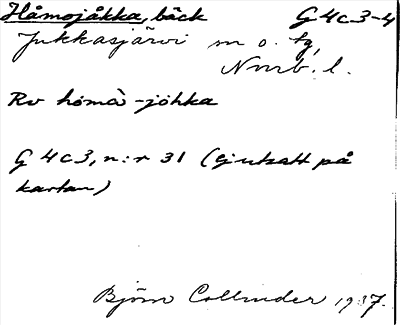 Håmojåkka, bäck G 4c3-4
Jukkasjärvi sn o. tg,
Norrb. l.
Rv hömà-jöhka
G 4c3, n:r 31 (ej utsatt på
kartan)
Björn Collinder 1937.